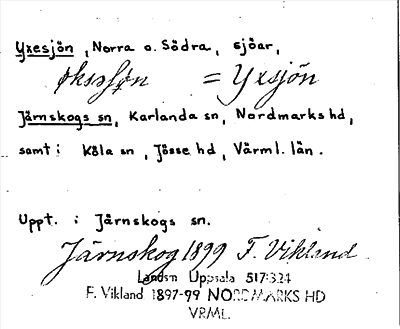 Yxesjön, Norra o. Södra, sjöar,
øksesjøn = Yxsjön
Järnskogs sn, Karlanda sn, Nordmarks hd,
samt i Köla sn, Jösse hd, Värml. län.
Uppt. i Järnskogs sn.
Järnskog 1899 F. Vikland
Landsm Uppsala 517:324
F. Vikland 1897-99 NORDMARKS HD
VRML.